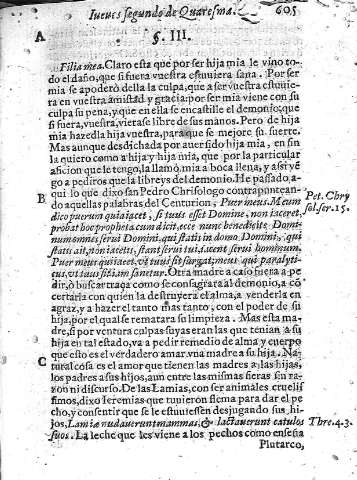 Iueues segundo de Quaresma. 605
A §. III.
Filia mea. Claro esta que por ser hija mia le vino to-
do el daño, que si fuera vuestra estuuiera sana. Por ser
mia se apoderò della la culpa, que a ser vuestra estuuie
ra en vuestra amistad y gracia: por ser mia viene con su
culpa su pena, y que en ella se encastille el demonio; que
si fuera, vuestra, vierase libre de sus manos. Pero de hija
mia hazedla hija vuestra, para que se mejore su suerte.
Mas aunque desdichada por auer sido hija mia, en fin
la quiero como a hija y hija mia, que por la particular
aficion que le tengo, la llamò mia a boca llena, y assi ve
go a pediros que la libreys del demonio. He passado, a-
qui lo que dixo san Pedro Chrisologo contrapuntean-
B do aquellas palabras del Centurion, Puer meus. Meum Pet. Chry
dico puerum quia iacet, si tuus esset Domine, non iaceret, sol. ser. 15.
probat hoc propheta cum dicit, ecce nunc benedicite Domi-
num omnes serui Domini, qui statis in domo Domini, qui
statis ait, non iacetis, stant serui tui, iacent serui hominum.
Puer meus quia iacet, vt tuus sit surgat; meus qui paralyti-
cus, vt tuus sit iam sanetur. Otra madre a caso fuera a pe-
dir, ò buscar traça como se consagrara al demonio, a cō
certarla con quien la destruyera el alma, a venderla en
agraz, y a hazer el tanto mas tanto, con el poder de su
hija, por el qual se rematara su limpieza. Mas esta ma-
dre, si por ventura culpas suyas eran las que tenian a su
hija en tal estado, va a pedir remedio de alma y cuerpo
C que esto es el verdadero amar vna madre a su hija. Na-
tural cosa es el amor que tienen las madres a las hijas,
los padres a sus hijos, aun entre las mismas fieras sin ra-
zon ni discurso. De las Lamias, con ser animales cruelis
simos, dixo Ieremias que tuuieron flema para dar el pe
cho, y consentir que se le estuuiessen desjugando sus hi-
jos, Lamiæ nudauerunt mammas, & lactauerunt catulos Thre. 4. 3.
suos. La leche que les viene a los pechos como enseña
Plutarco,